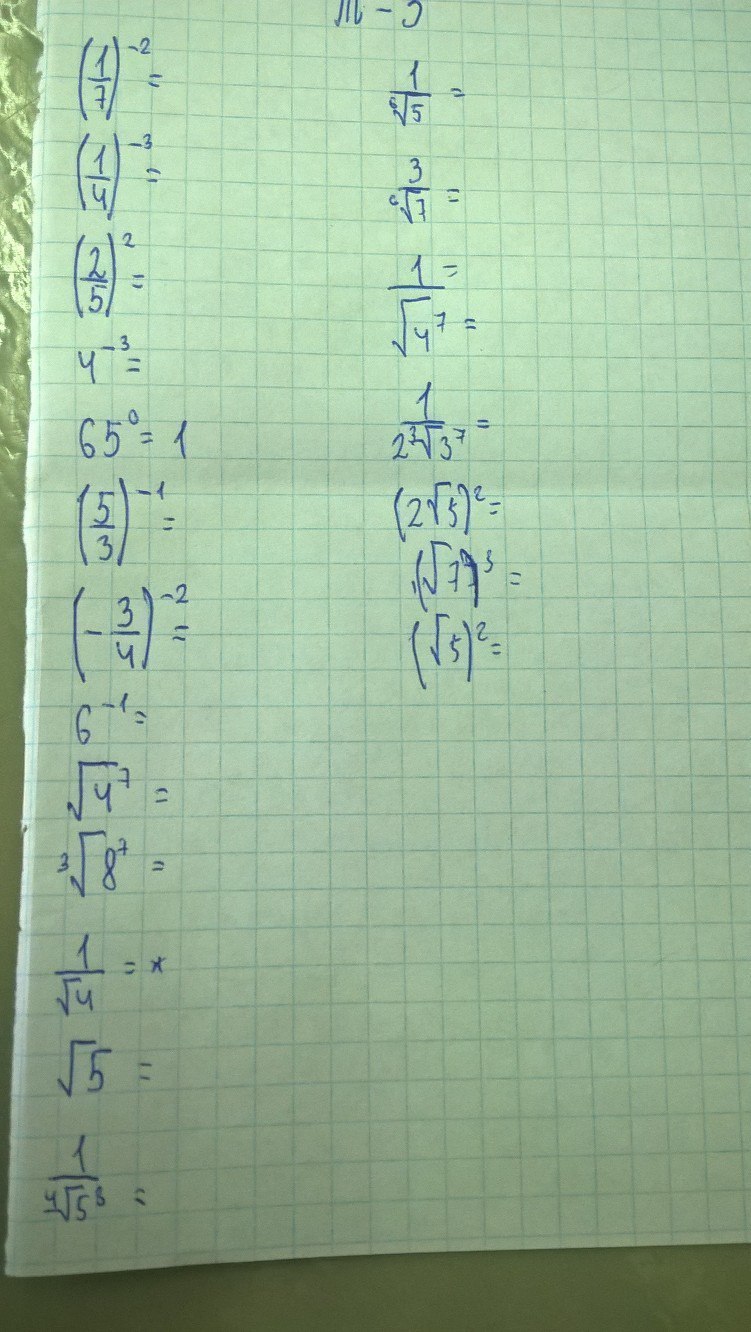 (1/7)^-2 =
(1/4)^-3 =
(2/5)^2 =
4^-3 =
65^0 = 1
(5/3)^-1 =
(-3/4)^-2 =
6^-1 =
√4^7 =
³√8^7 =
1/√4 = *
√5 =
1/⁴√5^3 =
1/⁶√5 =
3/⁶√7 =
1/√4^7 =
=
1/2³√3^7 =
(2√5)^2 =
(√5)^2 =